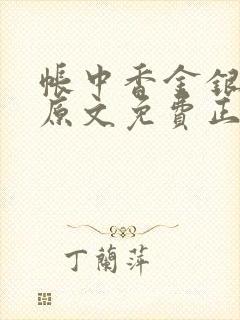 帳中香金銀
原文免費正
丁蘭萍